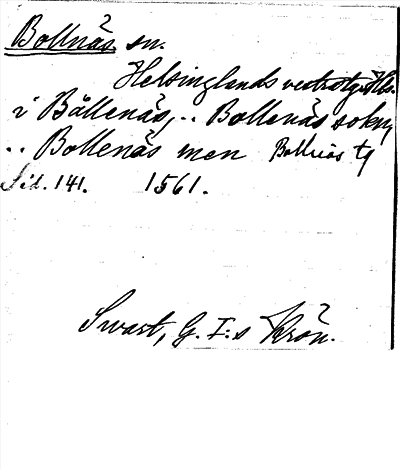 Bollnäs sn.
Helsinglands
i Bållenäs, .. Bollenäs sokn
.. Bollenäs men Bollnäs tg
Sid. 141. 1561.
Swart, G. I:s Krön.